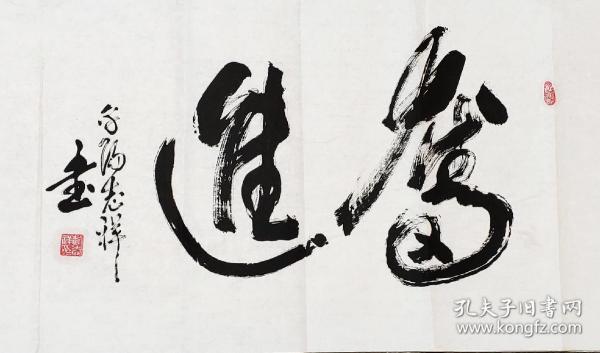 奮進
志祥
書
孔夫子旧书网
www.kongfz.com